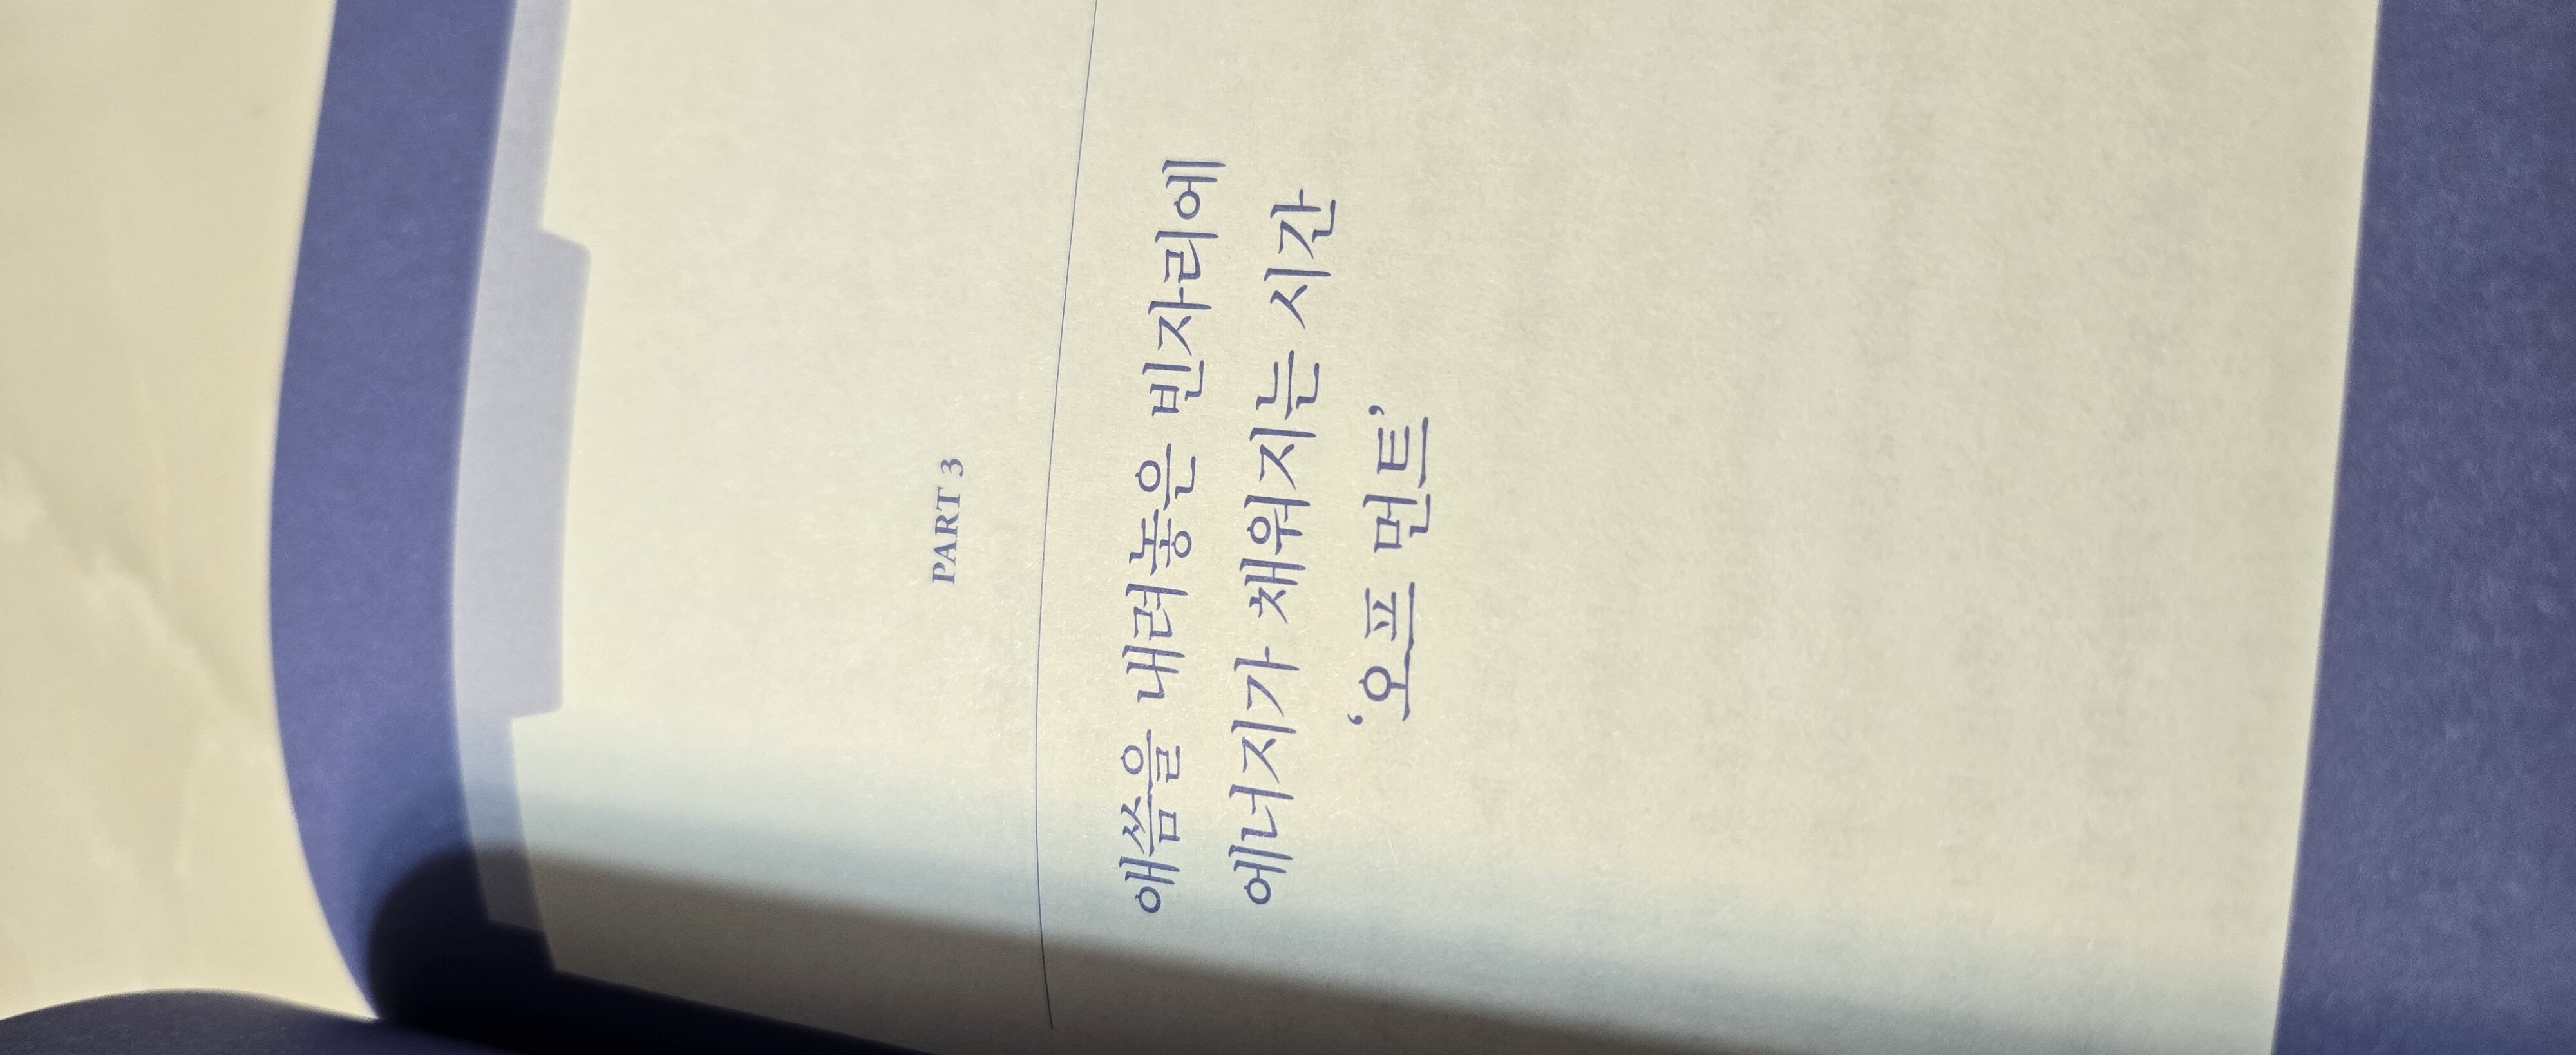 PART 3
애씀을 내려놓은 빈자리에
에너지가 채워지는 시간
‘오프 먼트’